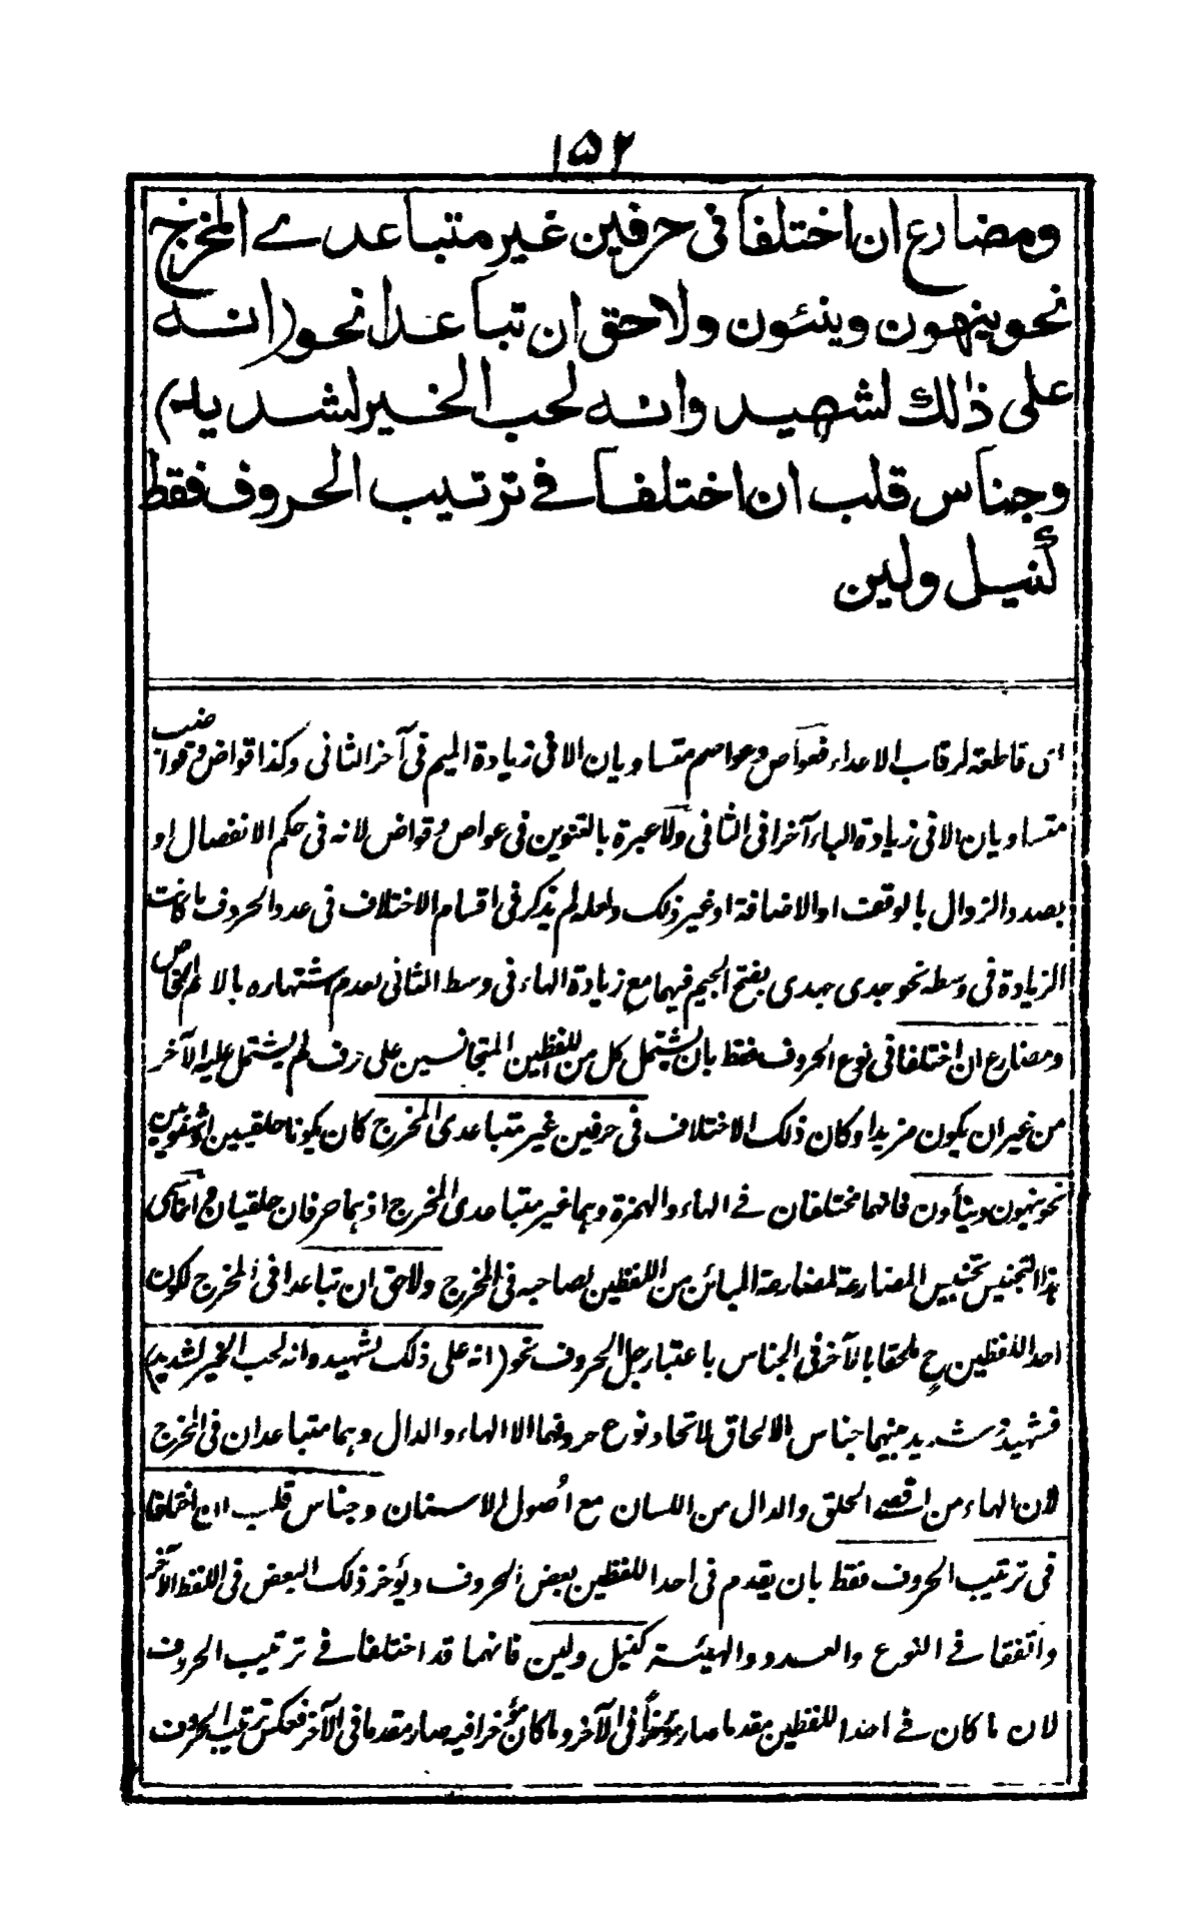 ١٥٢
ومضارع ان اختلفا في حرفين غير متباعدے المخرج
نحو ينهون وينئون ولاحق ان تباعدا نحو (انه
على ذلك لشهيد وانه لحب الخير لشديد)
وجناس قلب ان اختلفا في ترتيب الحروف فقط
كنيل ولين
اى قاطعة لرقاب الاعداء فعواص وعواصم متساويان الا فى زيادة الميم فى آخر الثانى وكذا قواض وقواضب
متساويان الا فى زيادة الباء آخرا فى الثانى ولا عبرة بالتنوين فى عواص وقواض لانه فى حكم الانفصال او
بصدد الزوال بالوقف او الاضافة او غير ذلك ولعله لم يذكر فى اقسام الاختلاف فى عدد الحروف ما كانت
الزيادة فى وسطه نحو جدى جهدى بفتح الجيم فيهما مع زيادة الهاء فى وسط الثانى لعدم اشتهاره بالاسم الخاص
ومضارع ان اختلفا فى نوع الحروف فقط بان يشتمل كل من اللفظين المتجانسين على حرف لم يشتمل عليه الآخر
من غير ان يكون مزيدا وكان ذلك الاختلاف فى حرفين غير متباعدى المخرج كان يكونا حلقيين او شفويين
نحو ينهون وينأون فانهما مختلفان فے الهاء والهمزة وهما غير متباعدى المخرج اذ هما حرفان حلقيان وانما سمى
هذا التجنيس تجنيس المضارعة لمضارعة المبائن من اللفظين لصاحبه فى المخرج ولاحق ان تباعدا فى المخرج لكون
احد اللفظين ح ملحقا بالآخر فى الجناس باعتبار جل الحروف نحو (انه على ذلك لشهيد وانه لحب الخير لشديد)
فشهيد وشديد بينهما جناس الالحاق لاتحاد نوع حروفهما الا الهاء والدال وهما متباعدان فى المخرج
لان الهاء من اقصے الحلق والدال من اللسان مع اصول الاسنان وجناس قلب ان اختلفا
فى ترتيب الحروف فقط بان يقدم فى احد اللفظين بعض الحروف ويؤخر ذلك البعض فى اللفظ الآخر
واتفقا فے النوع والعدد والهيئة كنيل ولين فانهما قد اختلفا فے ترتيب الحروف
لان ما كان فے احد اللفظين مقدما صار مؤخرا فى الآخر وما كان مؤخرا فيه صار مقدما فى الآخر فعكس ترتيب الحروف